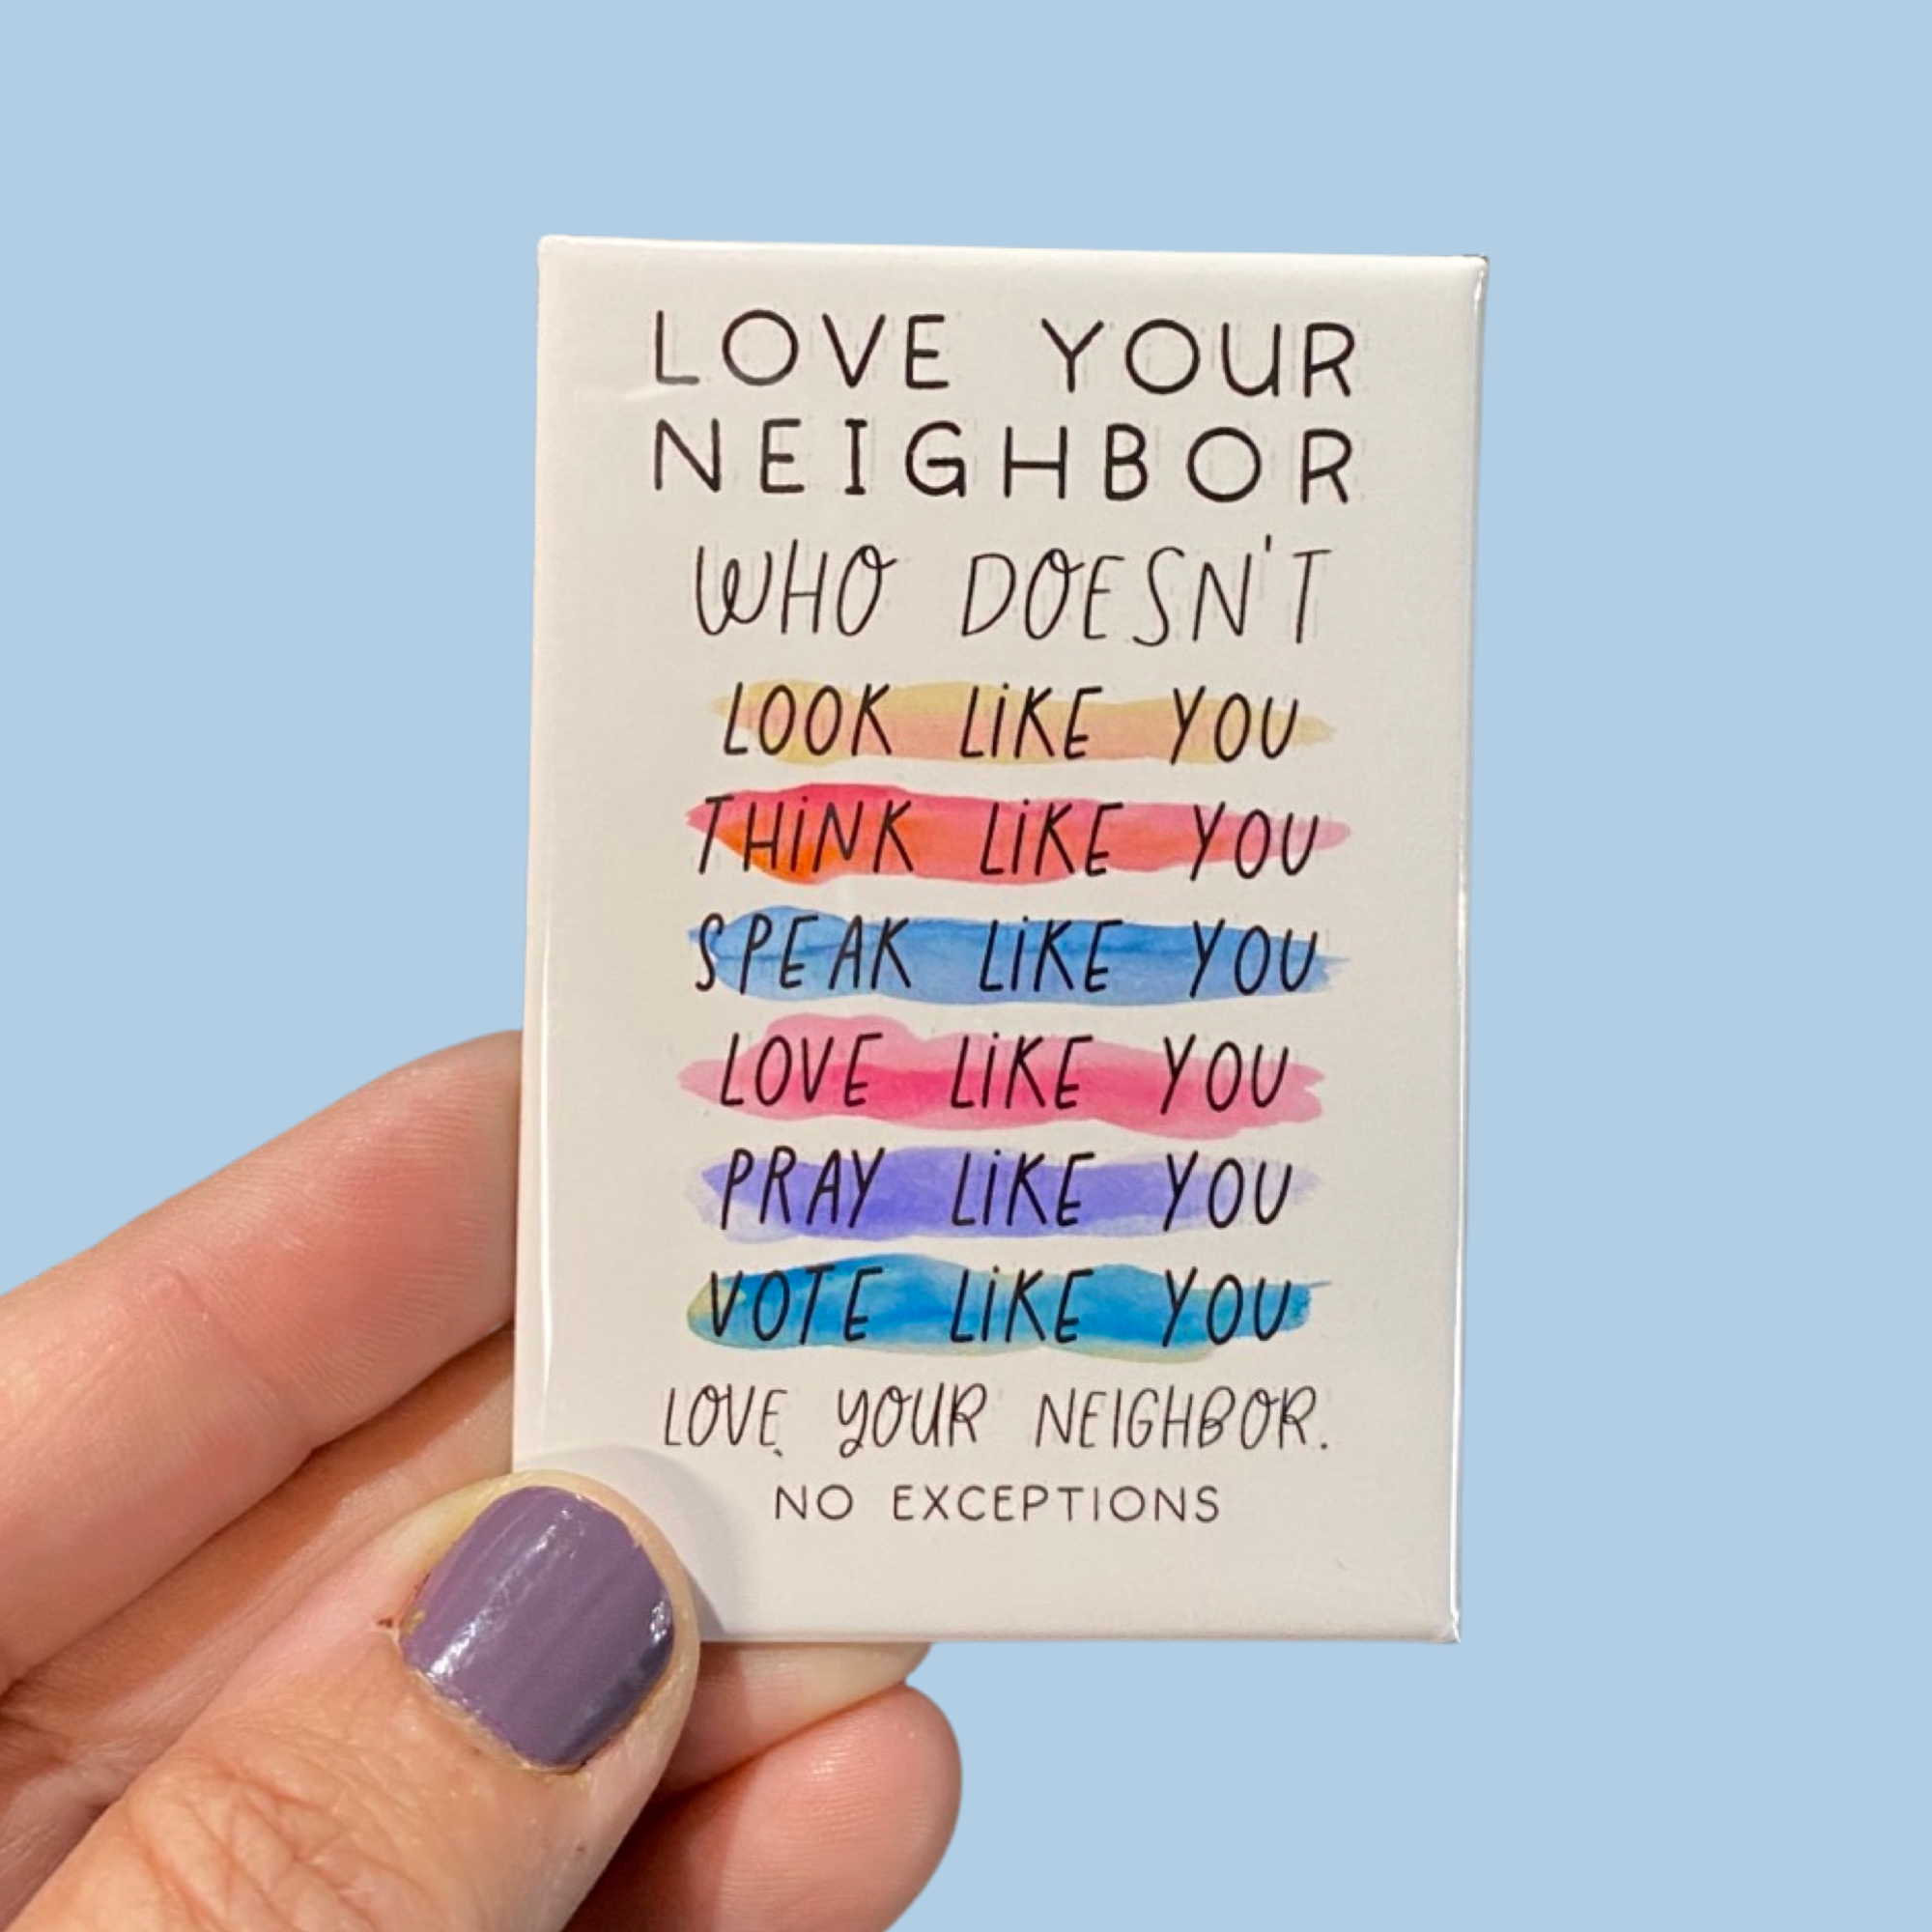 LOVE YOUR
NEIGHBOR
WHO DOESN'T
LOOK LIKE YOU
THINK LIKE YOU
SPEAK LIKE YOU
LOVE LIKE YOU
PRAY LIKE YOU
VOTE LIKE YOU
LOVE YOUR NEIGHBOR.
NO EXCEPTIONS